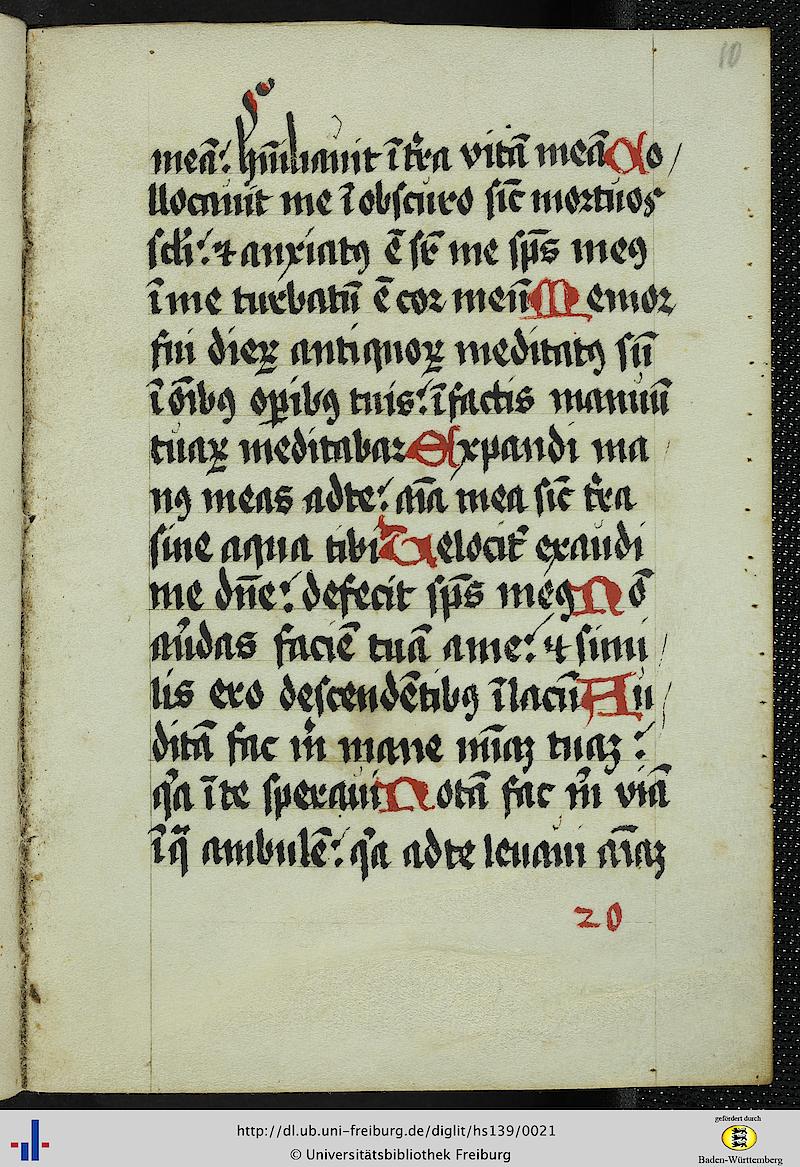 10
meā: hūiliauit ī t̄ra vitā meā Co/
llocauit me ī obscuro sic̄ mortuos
sc̄li: ⁊ anxiatꝰ ē sr̄ me sp̄s meꝰ
ī me turbatū ē cor meū Memor
fui dieꝝ antiquoꝝ meditatꝰ sū
ī oīb̄ꝰ oꝑibꝰ tuis: ī factis manuū
tuaꝝ meditabar Expandi ma/
nꝰ meas ad te: aīa mea sic̄ t̄ra
sine aqua tibi Velocit̄ exaudi
me dn̄e: defecit sp̄s meꝰ Nō
au̾das faciē tuā a me: ⁊ simi/
lis ero descendētibꝰ ī lacū Au/
ditā fac m̍ mane mīaꝫ tuaꝫ:
q̍a ī te speraui Notā fac m̍ viā
ī q̄ ambulē: q̍a ad te leuaui aīaꝫ
20
http://dl.ub.uni-freiburg.de/diglit/hs139/0021
© Universitätsbibliothek Freiburg
gefördert durch
Baden-Württemberg